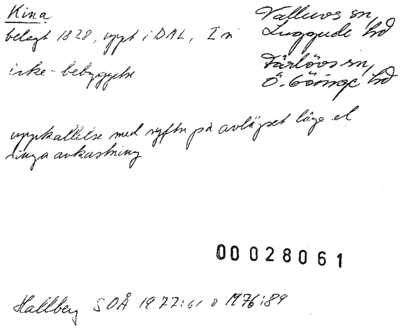 Kina
Välluvs sn,
Luggude hd
belagt 1828, uppt i DAL, I ri
Färlövs sn,
Ö. Göinge hd
icke-bebyggelse
uppkallelse med syftn på avlägset läge el
ringa avkastning
00028061
Hallberg SOÅ 1977:61 o 1976:89